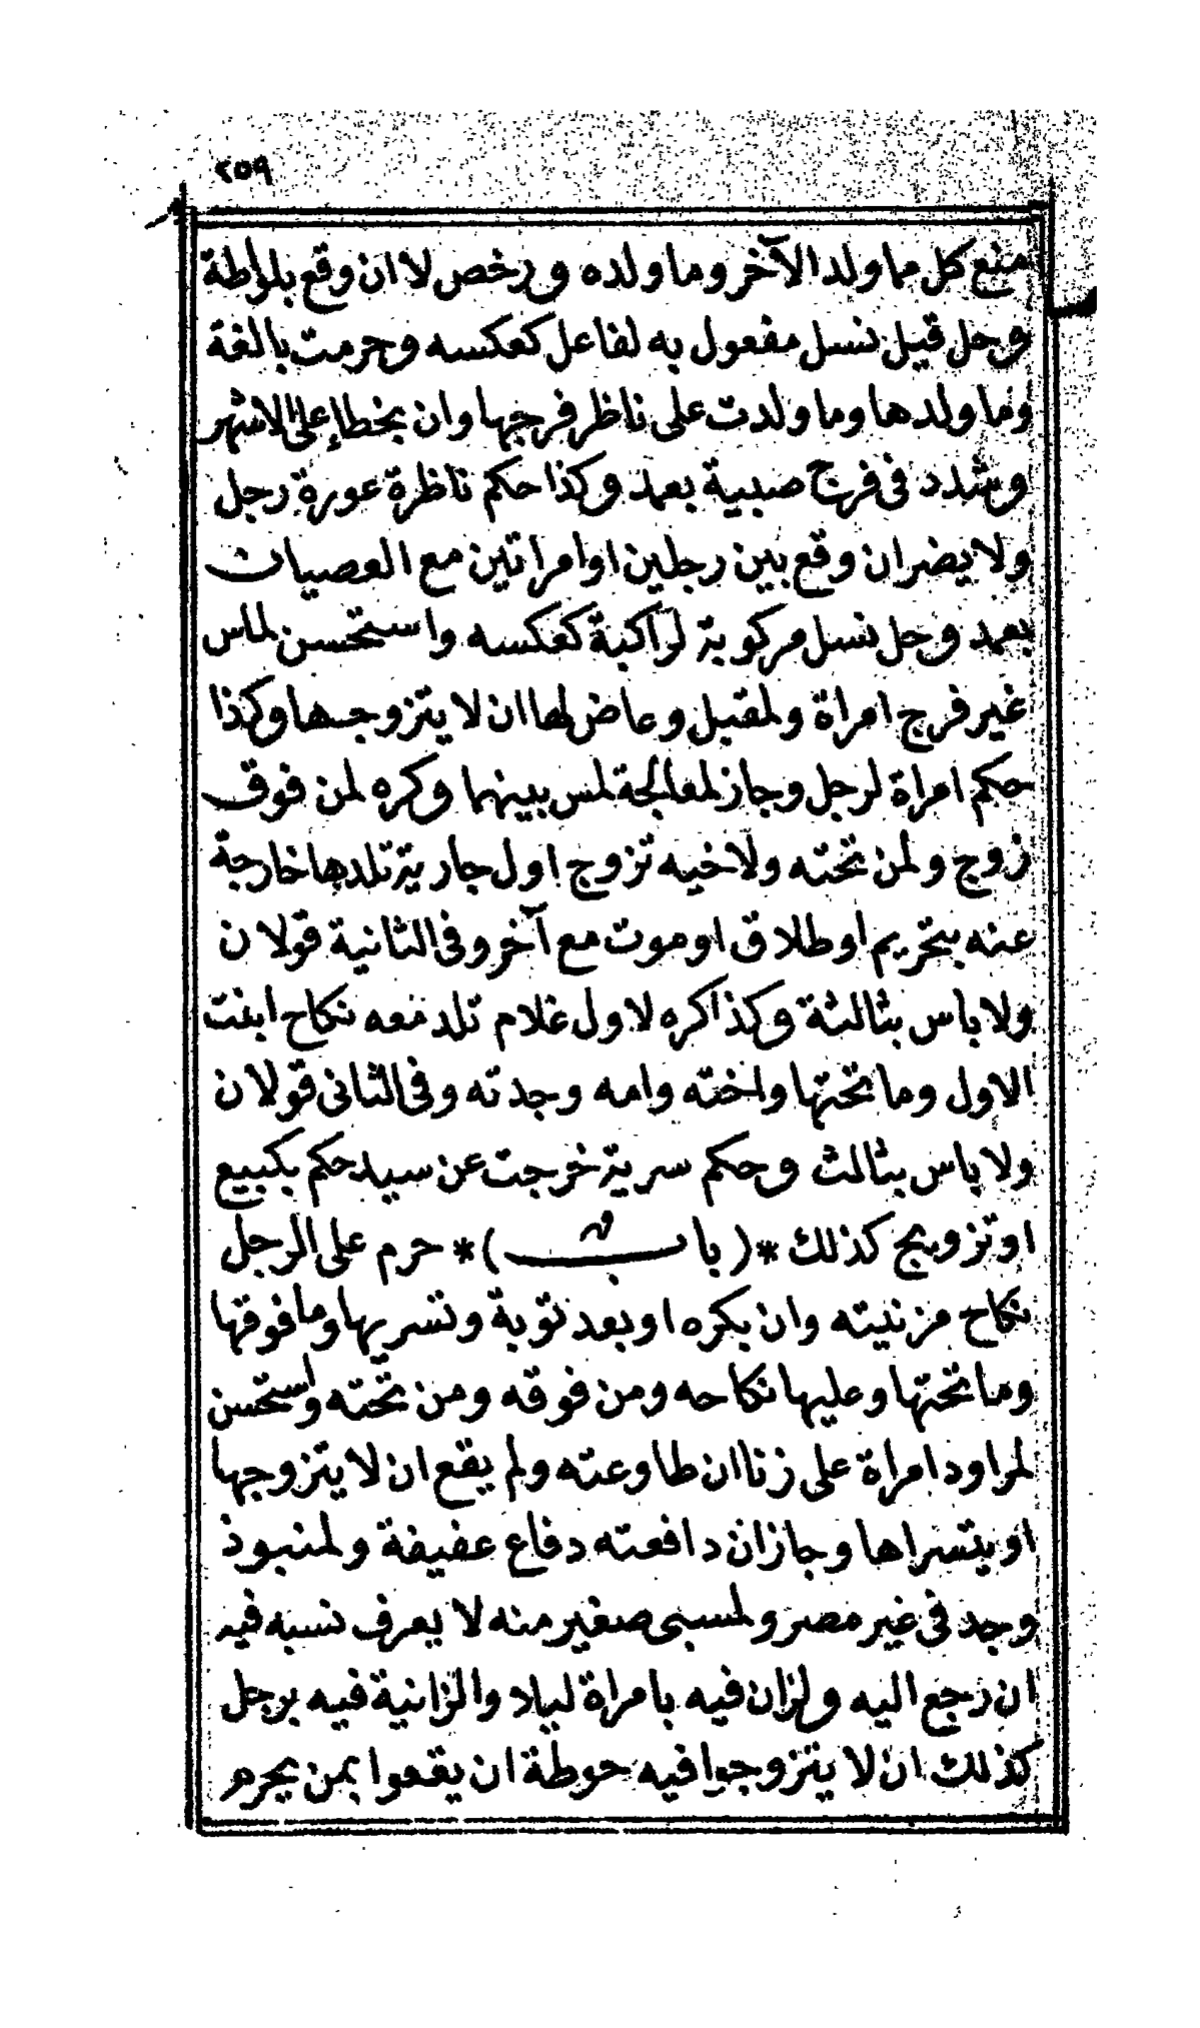 ٢٥٩
منع كل مما ولد الآخر وما ولده ورخص لا ان وقع بلواطة
وحل قيل نسل مفعول به لفاعل كعكسه وحرمت بالغة
وما ولدها وما ولدت على ناظر فرجها وان بخطاء على الاشهر
وشدد فى فرج صبية بعمد وكذا حكم ناظرة عورة رجل
ولا يضر ان وقع بين رجلين او امراتين مع العصيان
بعمد وحل نسل مركوبة لراكبة كعكسه واستحسن لماس
غير فرج امراة ولمقبل وعاض لها ان لا يتزوجها وكذا
حكم امراة لرجل وجاز لمعالجة لمس بينهما وكره لمن فوق
زوج ولمن تحته ولاخيه تزوج اول جارية تلدها خارجة
عنه بتحريم او طلاق او موت مع آخر وفى الثانية قولان
ولا باس بثالثة وكذا كره لاول غلام تلد معه نكاح ابنت
الاول وما تحتها واخته وامه وجدته وفى الثانى قولان
ولا باس بثالث وحكم سرية خرجت عن سيد حكم بكبيع
او تزويج كذلك *(باب)* حرم على الرجل
نكاح مزنيته وان بكره او بعد توبة وتسريها وما فوقها
وما تحتها وعليها نكاحه ومن فوقه ومن تحته واستحسن
لمراود امراة على زنا ان طاوعته ولم يقع ان لا يتزوجها
او يتسراها وجاز ان دافعته دفاع عفيفة ولمنبوذ
وجد فى غير مصر ولمسبى صغير منه لا يعرف نسبه فيه
ان رجع اليه ولزان فيه بامراة ليلا والزانية فيه برجل
كذلك ان لا يتزوجوا فيه حوطة ان يقعوا بمن يحرم